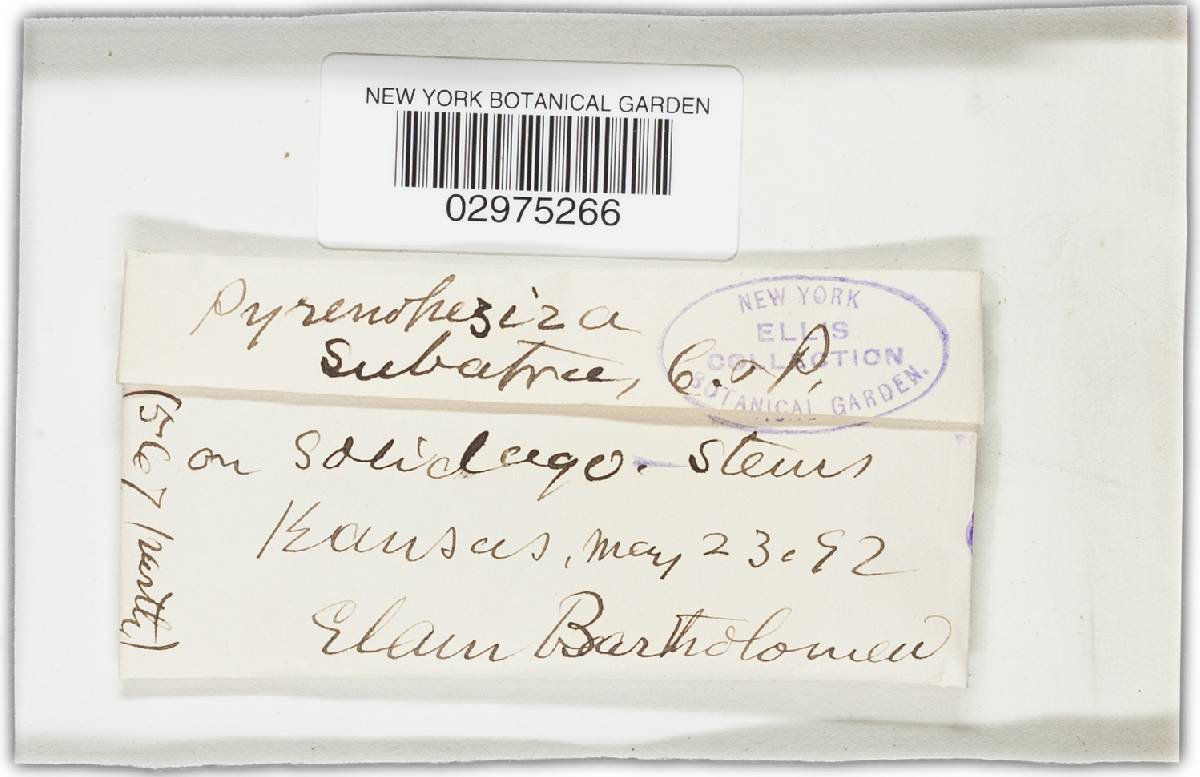 NEW YORK BOTANICAL GARDEN
02975266
Pyrenopeziza
subatra, C. & P.
NEW YORK
ELLIS
COLLECTION
BOTANICAL GARDEN.
on Solidago. stems
Kansas, May 23. 92
Elam Bartholomew
(567 Barth)